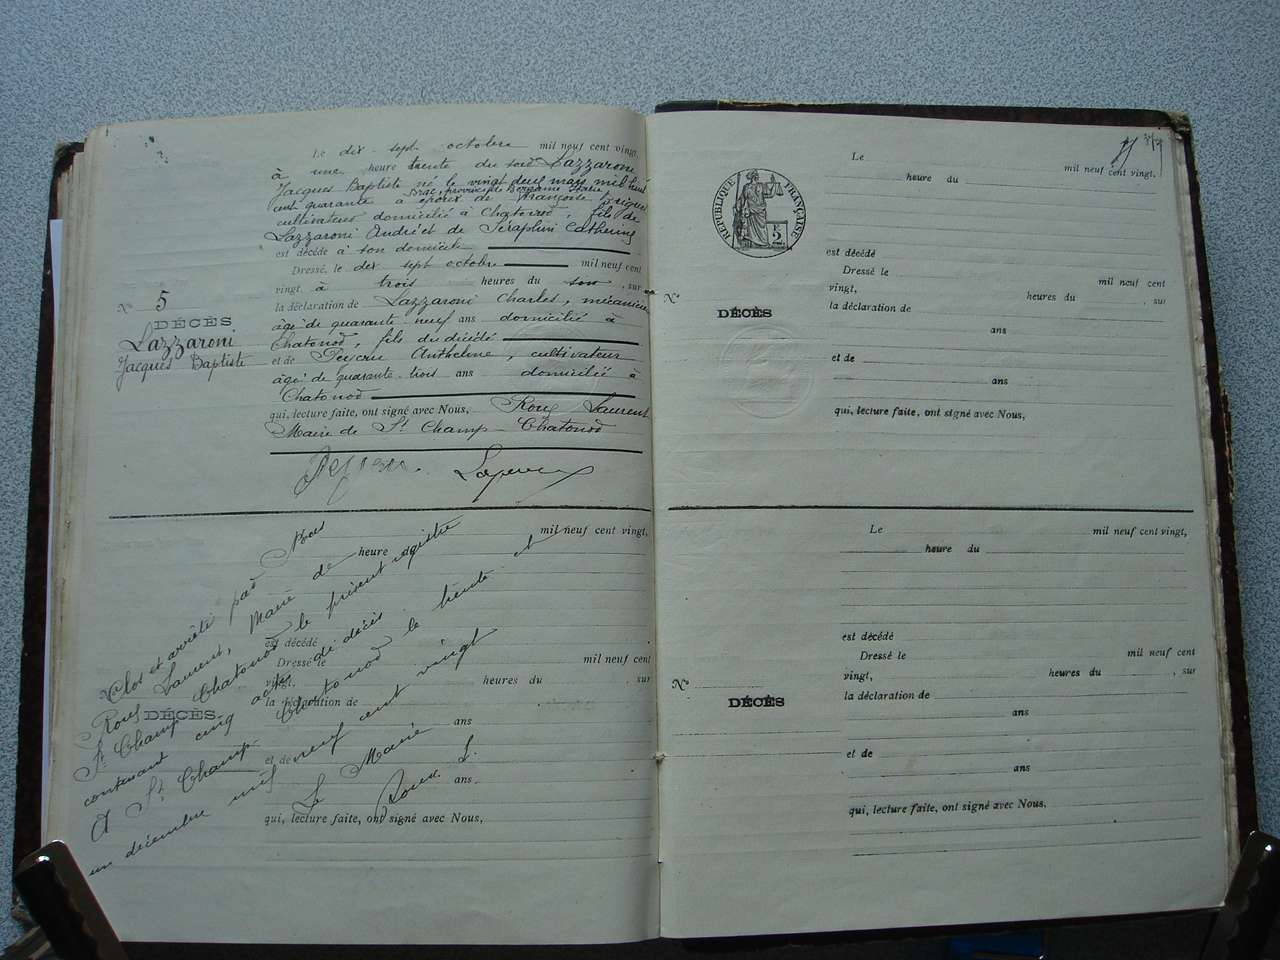 Le dix sept octobre mil neuf cent vingt,
à une heure trente du soir Lazzaroni
Jacques Baptiste né le vingt deux mars mil huit
cent quarante à Brac, province de Bergame Italie
époux de Françoise
cultivateur domicilié à Chatonod, fils de
Lazzaroni André et de Séraphini Catherine
est décédé à son domicile
Dressé le dix sept octobre mil neuf cent
vingt à trois heures du soir, sur
la déclaration de Lazzaroni Charles, mécanicien
âgé de quarante neuf ans domicilié à
Chatonod, fils du décédé
et de Peycru Anthelme, cultivateur
âgé de quarante trois ans domicilié à
Chatonod
qui, lecture faite, ont signé avec Nous, Roux Laurent
Maire de St Champ-Chatonod
No 5
DÉCÈS
Lazzaroni
Jacques Baptiste
mil neuf cent vingt,
heure du
est décédé
Dressé le
mil neuf cent
vingt,
heures du
, sur
la déclaration de
ans
et de
ans
qui, lecture faite, ont signé avec Nous,
No
DÉCÈS
Clos et arrêté par Nous
Roux Laurent, Maire de
St Champ Chatonod le présent registre
contenant cinq actes de décès
A St Champ-Chatonod le trente et
un décembre mil neuf cent vingt
Le Maire
Roux L.
RÉPUBLIQUE FRANÇAISE
Le
mil neuf cent vingt,
heure du
est décédé
Dressé le
mil neuf cent
vingt,
heures du
, sur
No
DÉCÈS
la déclaration de
ans
et de
ans
qui, lecture faite, ont signé avec Nous,
Le
mil neuf cent vingt,
heure du
est décédé
Dressé le
mil neuf cent
vingt,
heures du
, sur
No
DÉCÈS
la déclaration de
ans
et de
ans
qui, lecture faite, ont signé avec Nous,